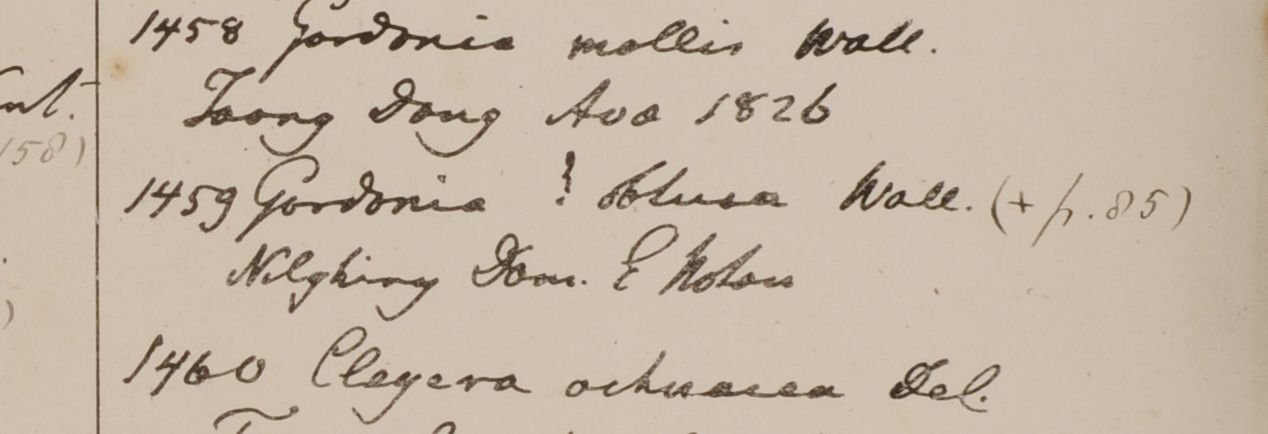 nt.
158)
1458 Gordonia mollis Wall.
Taong Dong Ava 1826
1459 Gordonia ? obtusa Wall. (+ p. 85)
Nilghiry Dom. E Noton
)
1460 Cleyera ochnacea Del.